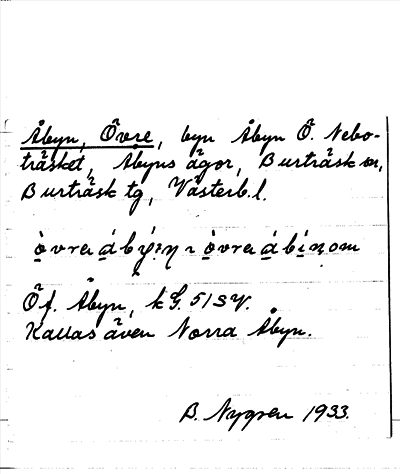 Åbyn, Övre, byn Åbyn Ö. Nebo-
träsket, Åbyns ägor, Burträsk sn,
Burträsk tg, Västerb.l.
òvra áb ı òvra ábínom
Öf. Åbyn, k G. 51 SV.
Kallas även Norra Åbyn.
B. Nygren 1933.